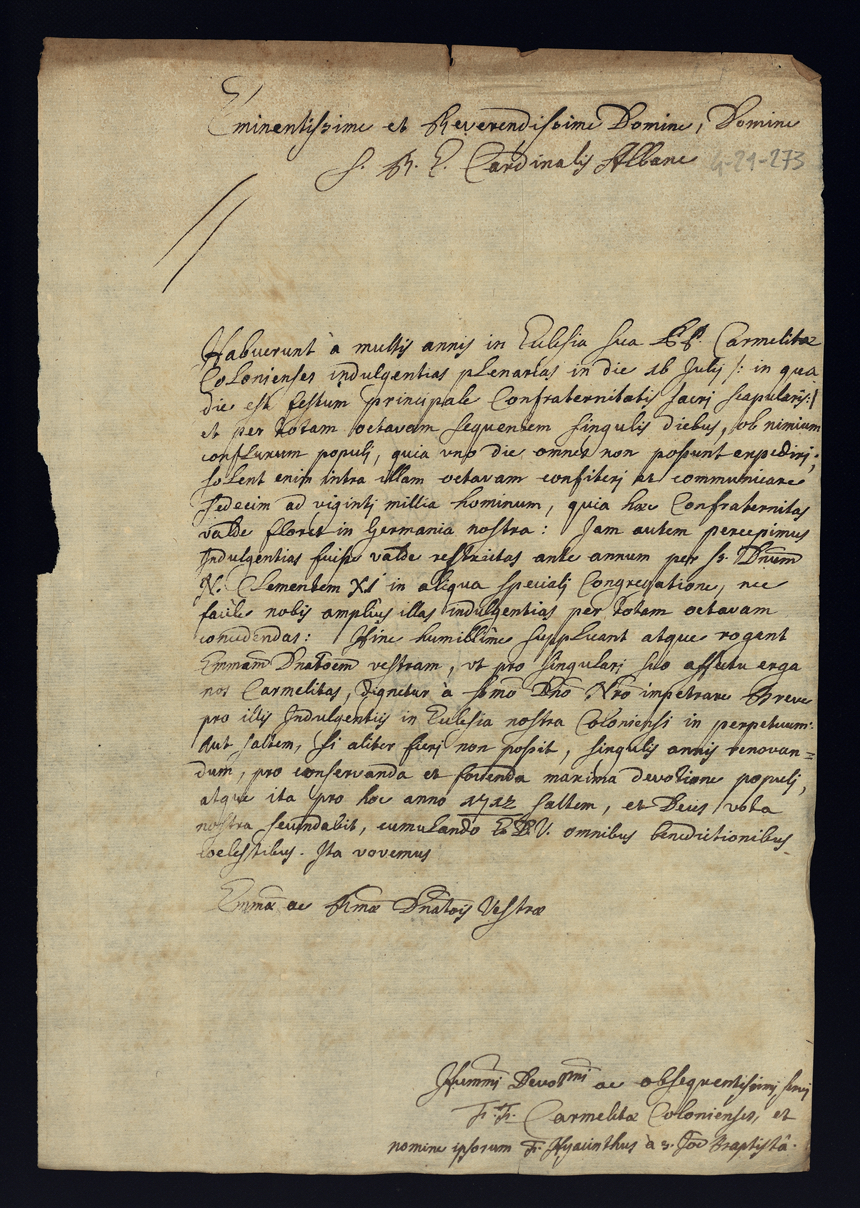 Eminentissime et Reverendissime Domine, Domine
S. R. E. Cardinalis Albane 4-21-273
Habuerunt à multis annis in Eclesia sua PP. Carmelitæ
Colonienses indulgentias plenarias in die 16 Julij /: in qua
die est festum principale Confraternitatis sacri scapularis :/
et per totam octavam sequentem singulis diebus, ob nimium
confluxum populj, quia uno die omnes non possunt expedirj;
solent enim intra illam octavam confiterj et communicare
sedecim ad vigintj millia hominum, quia hæc Confraternitas
valde floret in Germania nostra: Jam autem percepimus
Indulgentias fuisse valde restrictas ante annum per S. Dnum
N. Clementem XI in aliqua specialj Congregatione, nec
facile nobis amplius illas indulgentias per totam octavam
concedendas: Hinc humillime supplicant atque rogant
Emmam Dnatoem vestram, ut pro singularj suo affectu erga
nos Carmelitas, dignetur à Smo Dno Nro impetrare Breve
pro illis Indulgentijs in Eclesia nostra Coloniensi in perpetuum:
Aut saltem, si aliter fierj non possit, singulis annis renovan=
dum, pro conservanda et fovenda maxima devotione populj,
atque ita pro hoc anno 1712 saltem, et Deus vota
nostra secundabit, cumulando E. V. omnibus benedictionibus
coelestibus. Ita vovemus
Emmæ ac Rmæ Dnatois Vestræ
Hummi Devotmi ac obsequentissimj servj
F. F. Carmelitæ Colonienses, et
nomine ipsorum F. Hyacinthus à S. Joe Baptistâ.